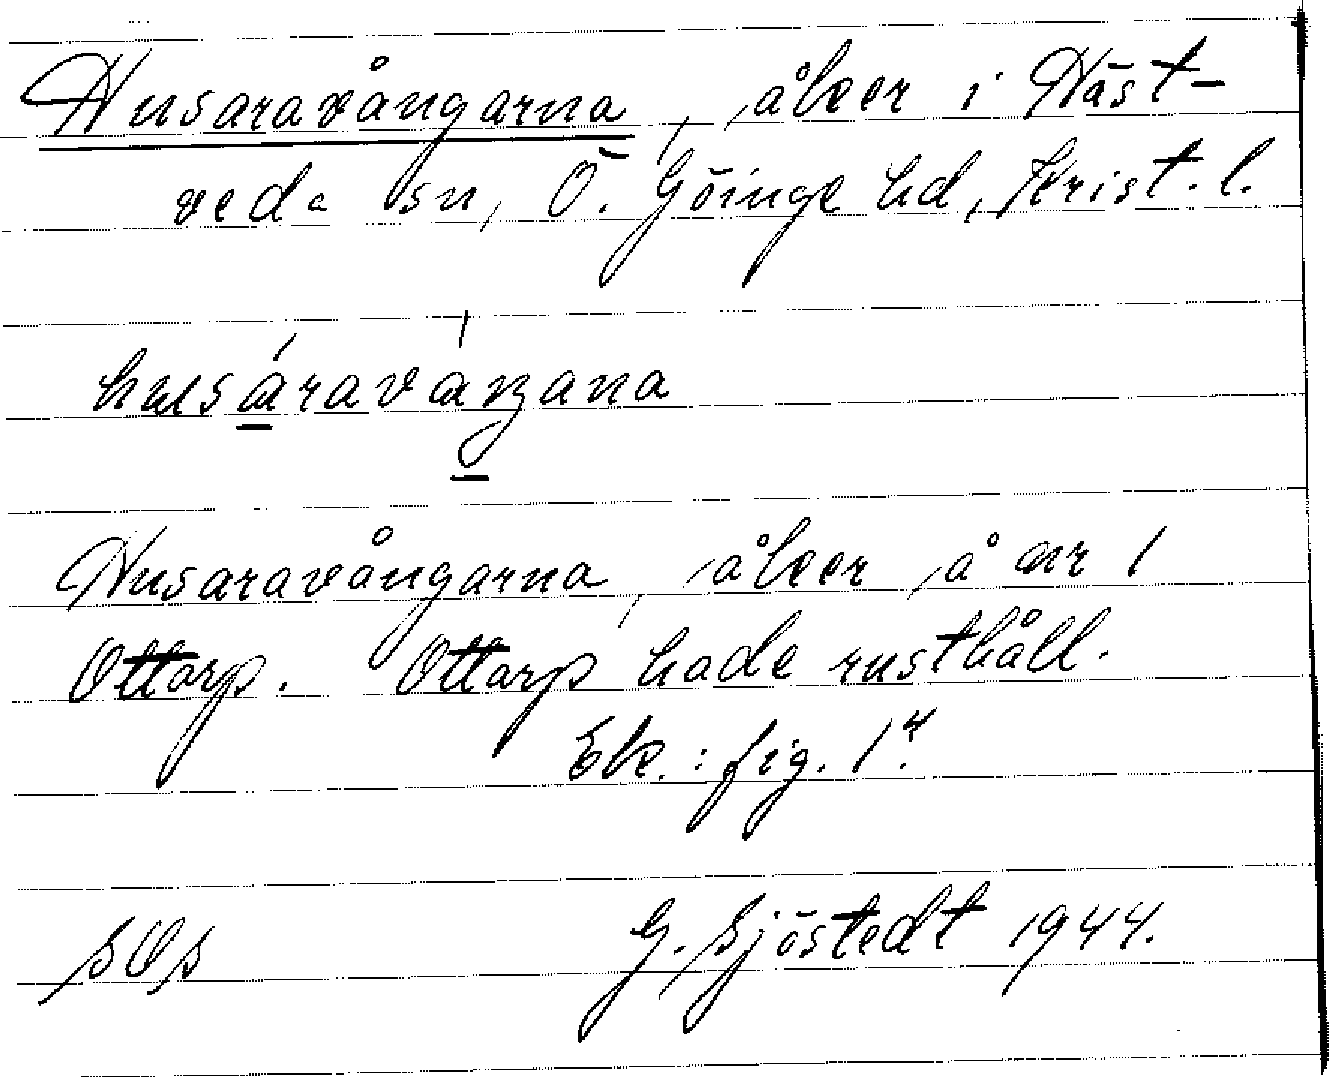 Husaravångarna, åker i Häst-
veda sn, Ö. Göinge hd, Krist. l.
husáraváŋana
Husaravångarna, åker, å nr 1
Ottarp. Ottarp hade rusthåll.
Ek.: fig. 1⁴.
sOs G. Sjöstedt 1944.